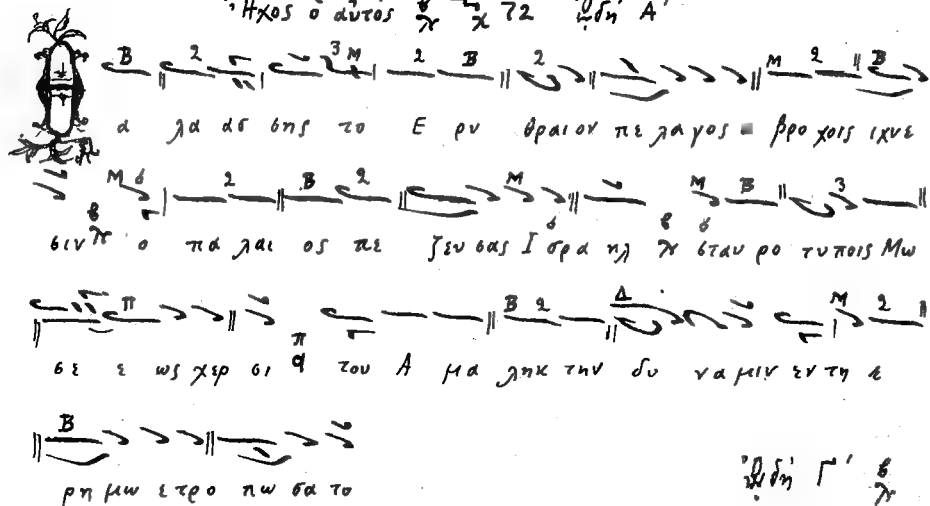 Ἦχος ὁ αὐτός χ 72 ᾨδὴ Α΄
Θα λα ασ σης το Ε ρυ θραιον πε λαγος βρο χοις ιχνε
σιν ο πα λαι ος πε ζευ σας Ι σρα ηλ σταυ ρο τυποις Μω
σε ε ως χερ σι του Α μα ληκ την δυ να μιν εν τη ε
ρη μω ε τρο πω σα το
ᾨδὴ Γ΄